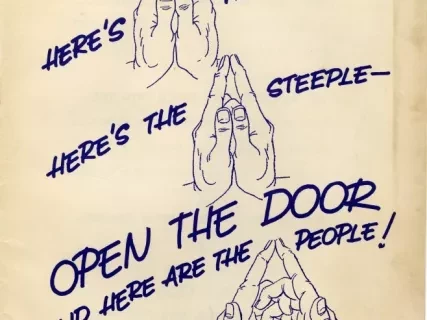 HERE'S
HERE'S THE STEEPLE—
OPEN THE DOOR
HERE ARE THE PEOPLE!